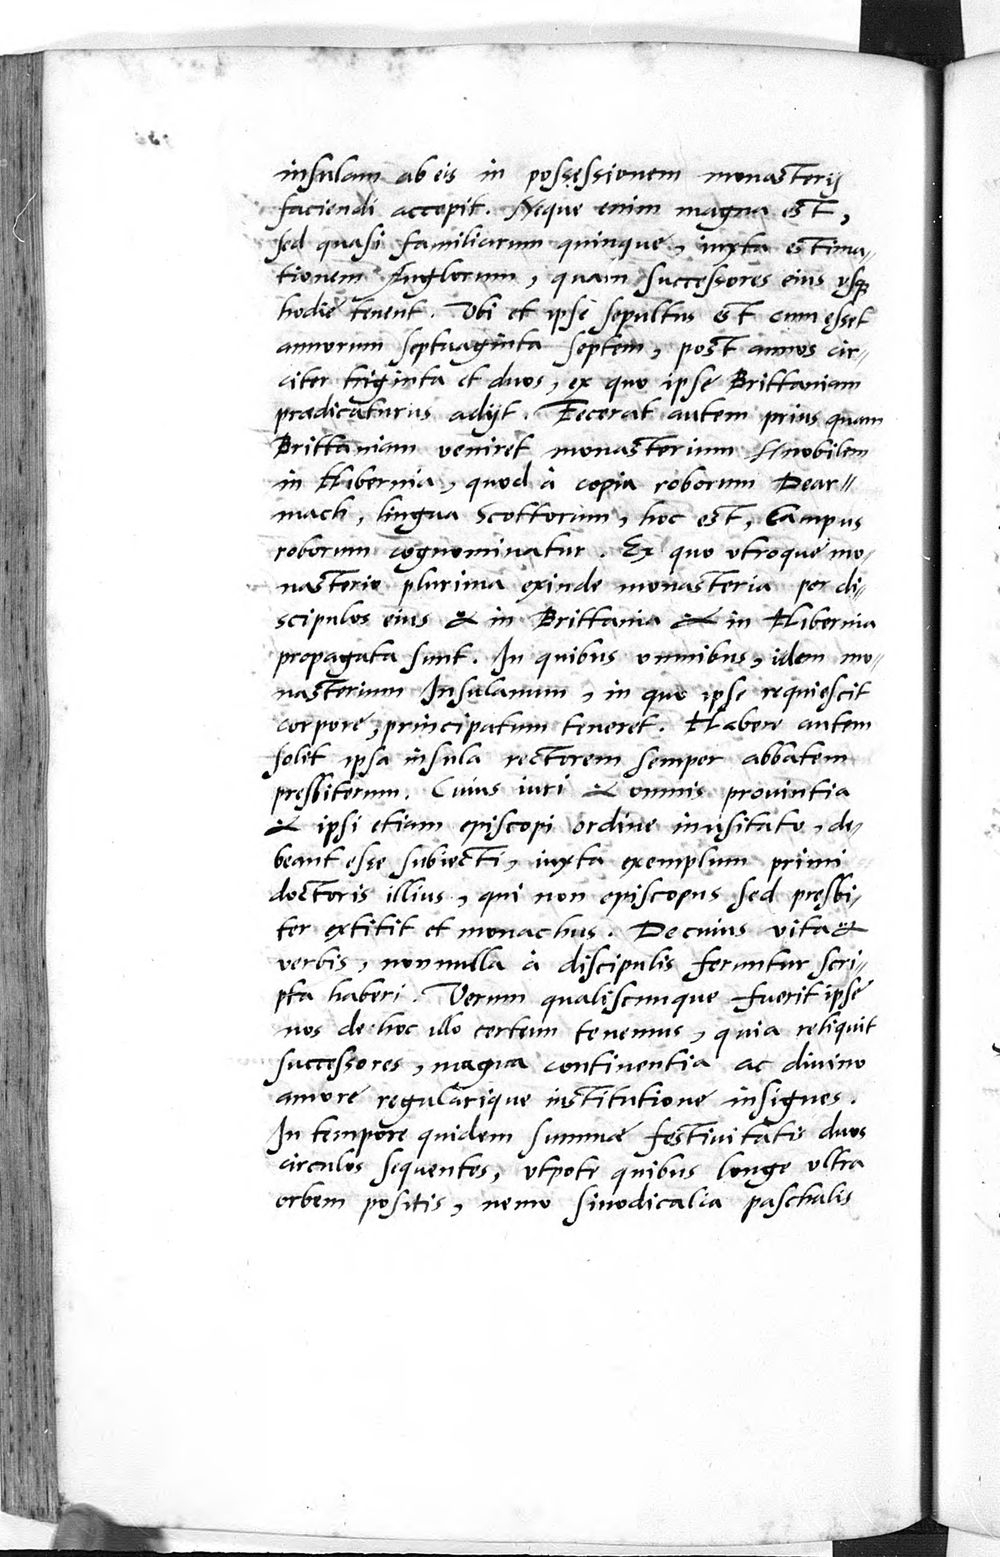 insulam ab eis in possessionem monasterij
faciendi accepit. Neque enim magna est,
sed quasi familiarum quinque, iuxta estima//
tionem Anglorum, quam successores eius vsq;
hodie tenent. Vbi et ipse sepultus est cum esset
annorum septuaginta septem, post annos cir//
citer triginta et duos, ex quo ipse Brittaniam
prædicaturus adijt. Fecerat autem prius quam
Brittaniam veniret monasterium nobilem
in Hibernia, quod à copia roborum Dear//
mach, lingua Scottorum, hoc est, Campus
roborum cognominatur. Ex quo vtroque mo//
nasterio plurima exinde monasteria per di//
scipulos eius & in Brittania & in Hibernia
propagata sunt. In quibus omnibus, idem mo//
nasterium Insulanum, in quo ipse requiescit
corpore, principatum teneret. Habere autem
solet ipsa insula rectorem semper abbatem
presbiterum. Cuius iuri & omnis prouintia
& ipsi etiam episcopi ordine inusitato, de//
beant esse subiecti, iuxta exemplum primi
doctoris illius, qui non episcopus sed presbi//
ter extitit et monachus. De cuius vita &
verbis, nonnulla à discipulis feruntur scri//
pta haberi. Verum qualiscunque fuerit ipse
nos de hoc illo certum tenemus, quia reliquit
successores, magna continentia ac diuino
amore regularique institutione insignes.
In tempore quidem summæ festiuitatis duos
circulos sequentes, vtpote quibus longe vltra
orbem positis, nemo sinodicalia paschalis